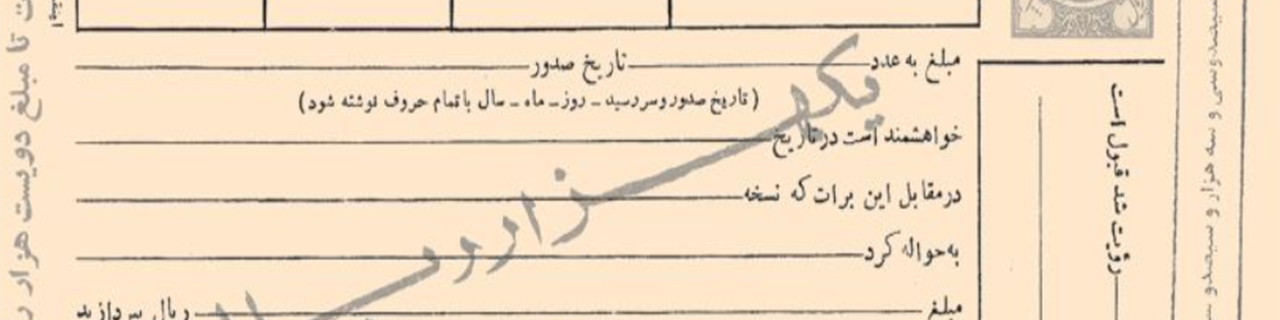 مبلغ به عدد ــــــ تاریخ صدور ــــــ
(تاریخ صدور و سررسید ـ روز ـ ماه ـ سال با تمام حروف نوشته شود)
خواهشمند است در تاریخ ــــــ
در مقابل این برات که نسخه ــــــ
به حواله کرد ــــــ
مبلغ ــــــ ریال بپردازید
رؤیت شد قبول است
یکهزار و
تا مبلغ دویست هزار
سیصد و سی و سه هزار و سیصد و